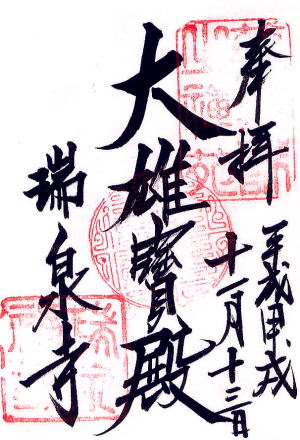 奉拝
平成甲戌
十一月十三日
大雄寶殿
瑞泉寺